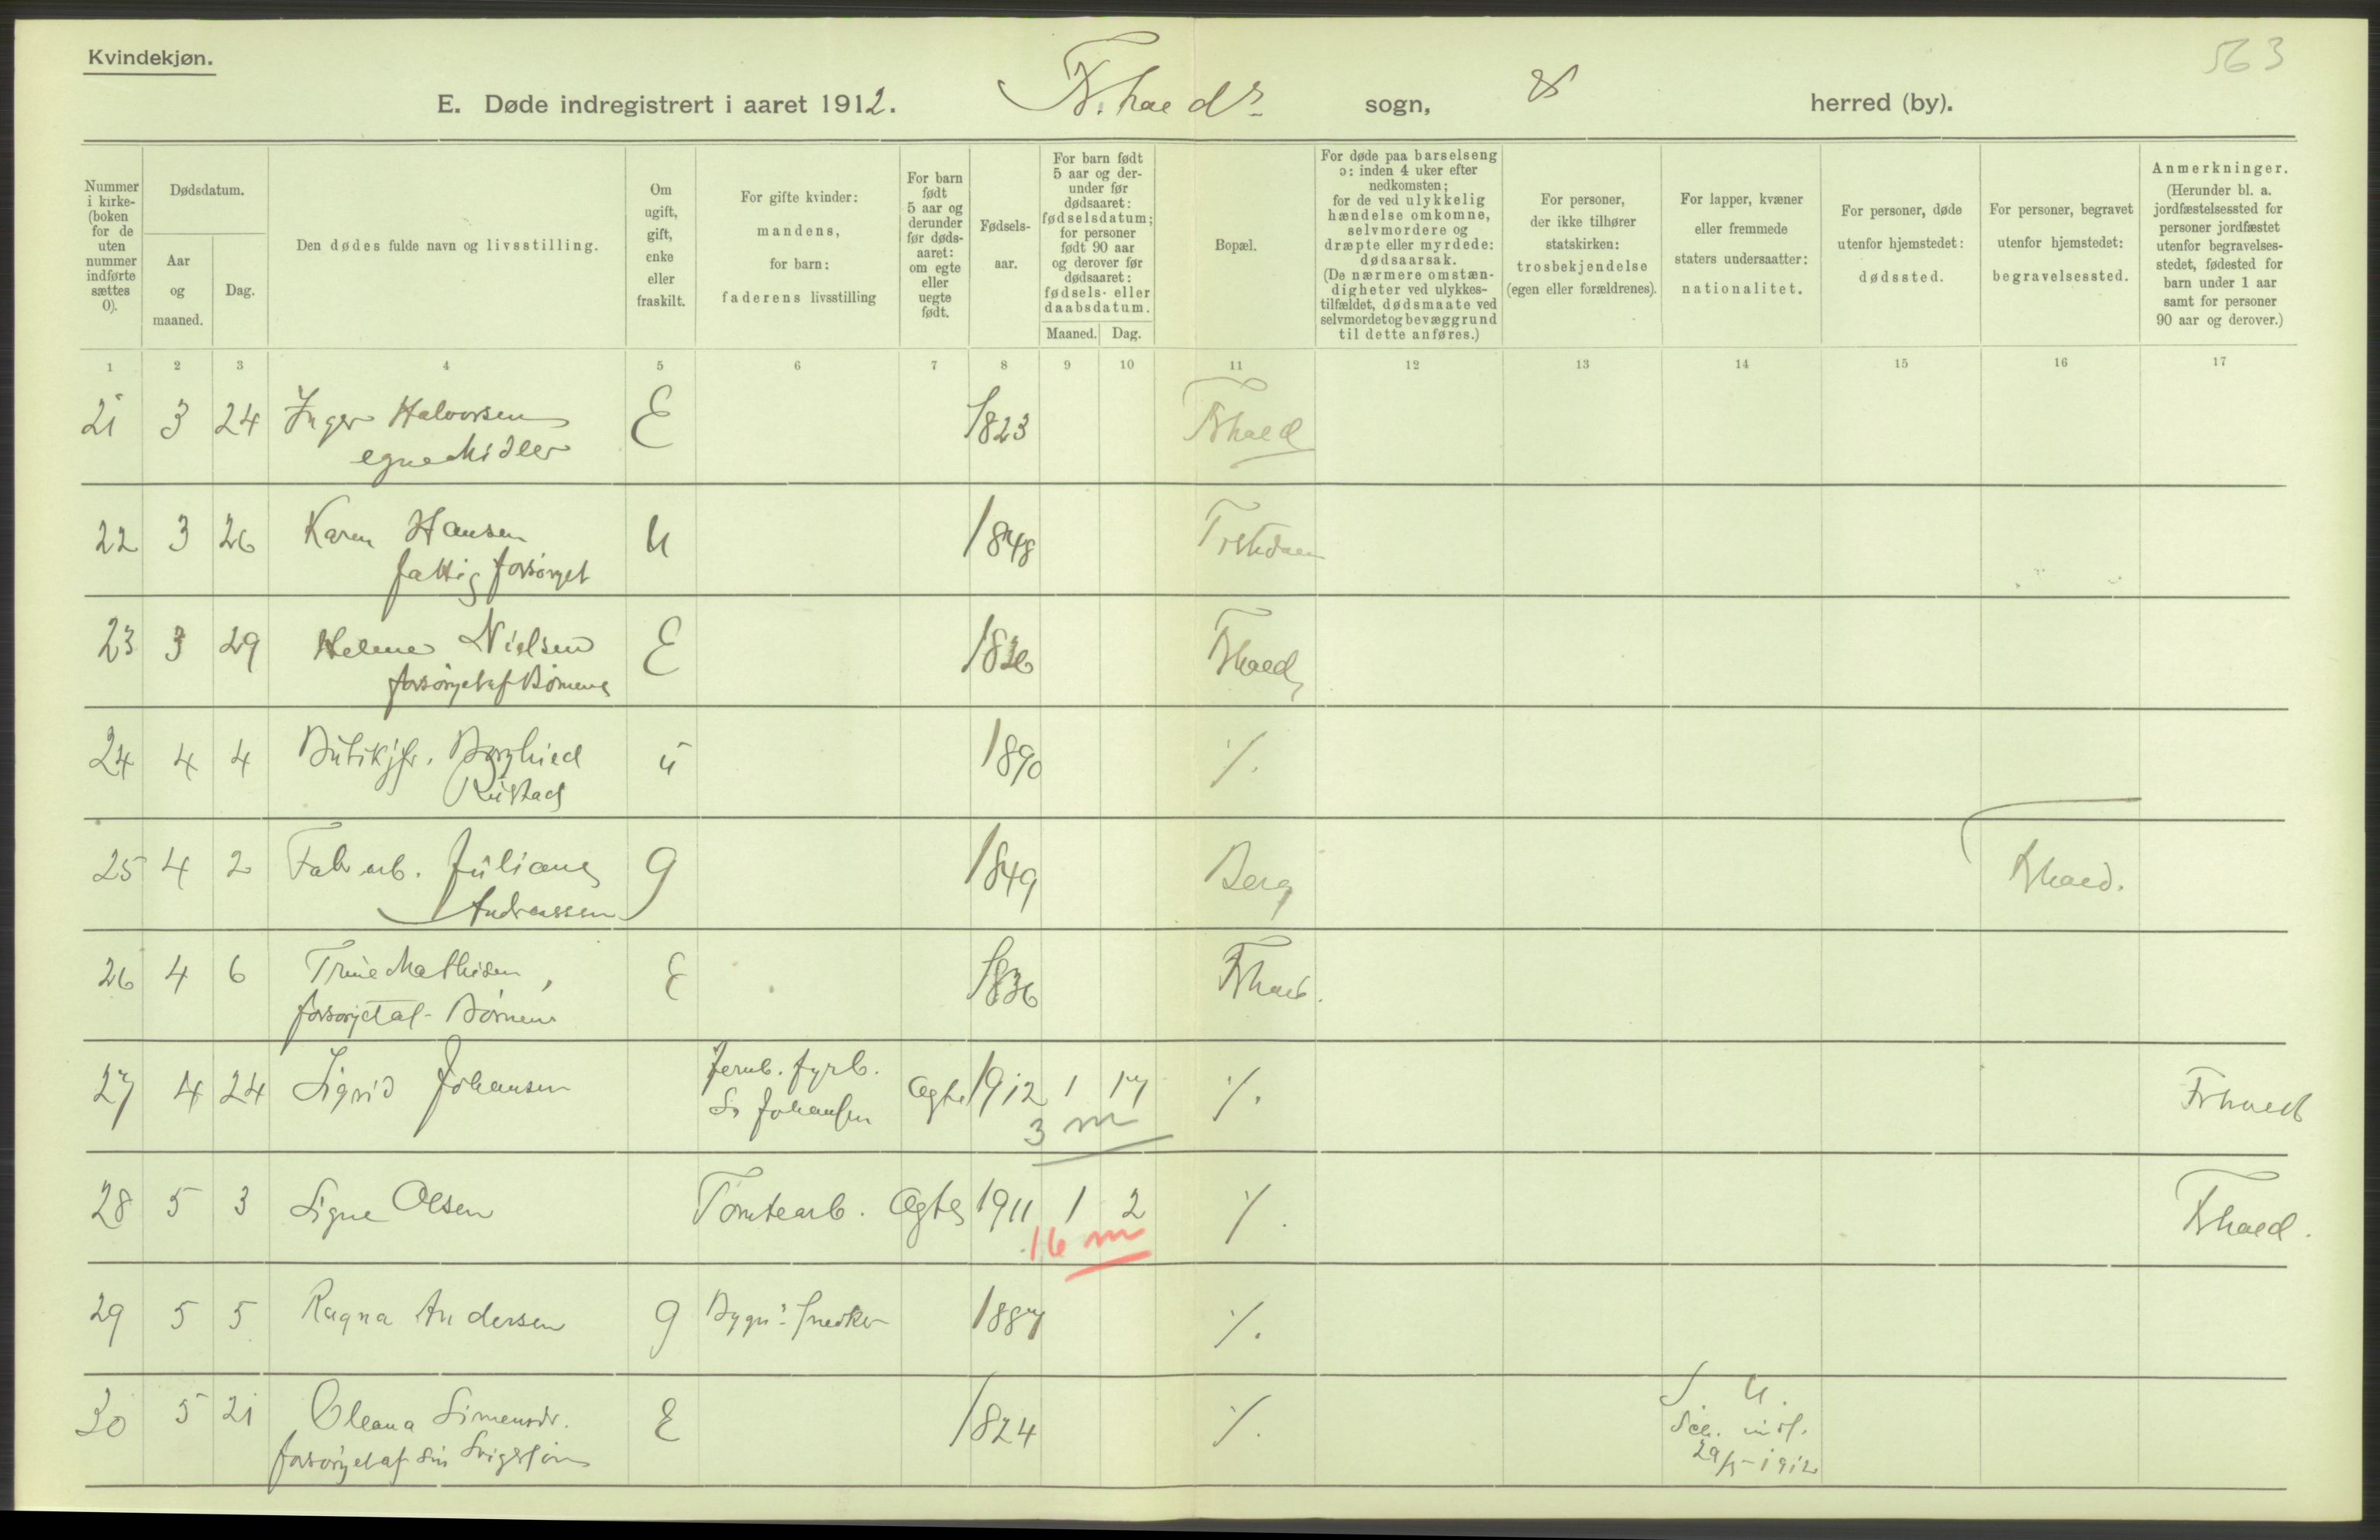 Kvindekjøn.
563
E. Døde indregistrert i aaret 1912. Frhalds sogn, herred (by).
Nummer
i kirke-
(boken
for de
uten
nummer
indførte
sættes
0).
Dødsdatum.
Aar
og
maaned.
Dag.
Den dødes fulde navn og livsstilling.
Om
ugift,
gift,
enke
eller
fraskilt.
For gifte kvinder:
mandens,
for barn:
faderens livsstilling
For barn
født
5 aar og
derunder
før døds-
aaret:
om egte
eller
uegte
født.
Fødsels-
aar.
For barn født
5 aar og der-
under før
dødsaaret:
fødselsdatum;
for personer
født 90 aar
og derover før
dødsaaret:
fødsels- eller
daabsdatum.
Maaned. Dag.
Bopæl.
For døde paa barselseng
ɔ: inden 4 uker efter
nedkomsten;
for de ved ulykkelig
hændelse omkomne,
selvmordere og
dræpte eller myrdede:
dødsaarsak.
(De nærmere omstæn-
digheter ved ulykkes-
tilfældet, dødsmaate ved
selvmordet og bevæggrund
til dette anføres.)
For personer,
der ikke tilhører
statskirken:
trosbekjendelse
(egen eller forældrenes).
For lapper, kvæner
eller fremmede
staters undersaatter:
nationalitet.
For personer, døde
utenfor hjemstedet:
dødssted.
For personer, begravet
utenfor hjemstedet:
begravelsessted.
Anmerkninger.
(Herunder bl. a.
jordfæstelsessted for
personer jordfæstet
utenfor begravelses-
stedet, fødested for
barn under 1 aar
samt for personer
90 aar og derover.)
1 2 3 4 5 6 7 8 9 10 11 12 13 14 15 16 17
21 3 24 Inger Halvorsen E 1823 Frhald
egne Midler
22 3 26 Karen Hansen U 1848 Tistedaen
fattigforsørget
23 3 29 Helene Nielsen E 1836 Frhald
forsørget af Børnene
24 4 4 Butikjfr. Borghild u 1890 ·/.
Rustad
25 4 2 Fab arb. Juliane g 1849 Berg Frhald.
Andreassen
26 4 6 Trine Mathisen, E 1836 Frhald.
forsørget af Børnene
27 4 24 Sigrid Johansen Jernb. fyrb. ægte 1912 1 17 ·/. Frhald
Johansen
3 m
28 5 3 Signe Olsen Tomtearb. ægte 1911 1 2 ·/. Frhald.
16 m
29 5 5 Ragna Andersen g Bygn: snedker 1887 ·/.
30 5 21 Oleana Simensdr. E 1824 ·/. S. U.
forsørget af sin Svigersøn
29/5-1912